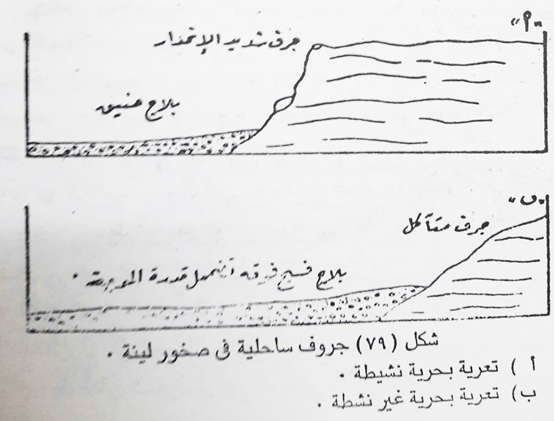 "أ"
جرف شديد الإنحدار
بلاج ضيق
"ب"
جرف متآكل
بلاج فسيح فوقه تضمحل قدرة الموجة .
شكل (٧٩) جروف ساحلية فى صخور لينة .
أ ) تعرية بحرية نشيطة .
ب) تعرية بحرية غير نشطة .